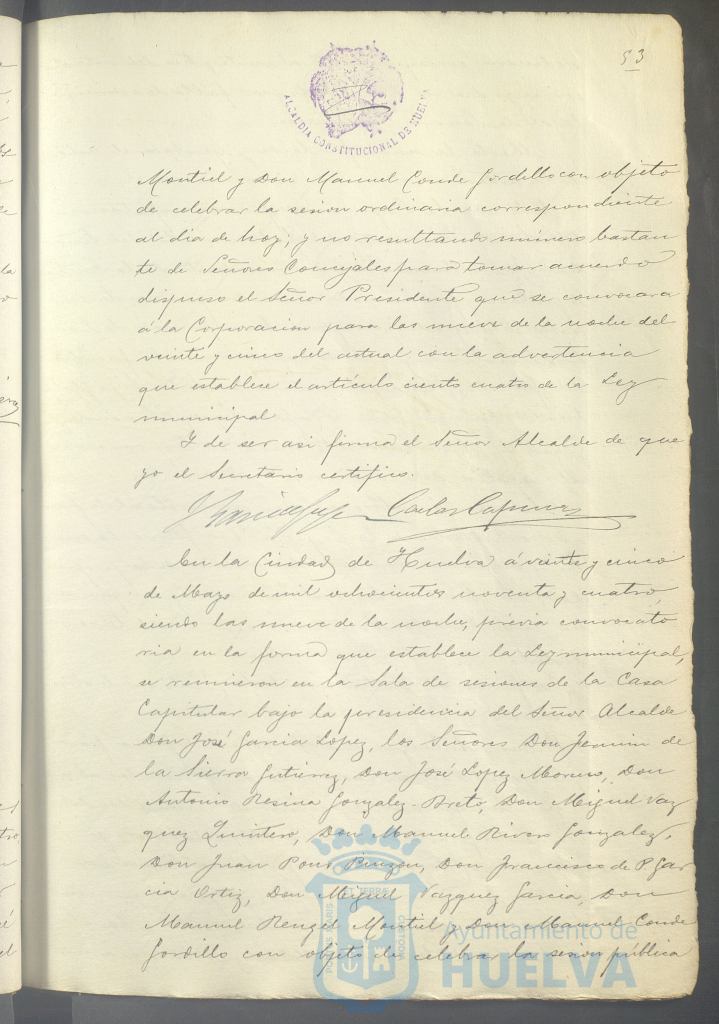 53
ALCALDIA CONSTITUCIONAL DE HUELVA
Montiel y Don Manuel Conde Gordillo con objeto
de celebrar la sesion ordinaria correspondiente
al dia de hoy; y no resultando número bastan
te de Señores Concejales para tomar acuerdo
dispuso el Señor Presidente que se convocara
á la Corporacion para las nueve de la noche del
veinte y cinco del actual con la advertencia
que establece el artículo ciento cuatro de la Ley
municipal
Y de ser asi firma el Señor Alcalde de que
yo el Secretario certifico.
En la Ciudad de Huelva á veinte y cinco
de Mayo de mil ochocientos noventa y cuatro,
siendo las nueve de la noche, prévia convocato
ria en la forma que establece la Ley municipal,
se reunieron en la Sala de sesiones de la Casa
Capitular bajo la presidencia del Señor Alcalde
Don José Garcia López, los Señores Don de
la Sierra Gutiérrez, Don José Lopez Moreno, Don
Antonio Resina Gonzalez-Breto, Don Miguel Vaz
quez Quintero, Don Manuel Rivero Gonzalez,
Don Juan Pons Pinzon, Don Francisco de P. Gar
cia Ortiz, Don Miguel Vazquez Garcia, Don
Manuel Rengel Montiel y Don Manuel Conde
Gordillo con objeto de celebrar la sesion pública
Ayuntamiento de
HUELVA